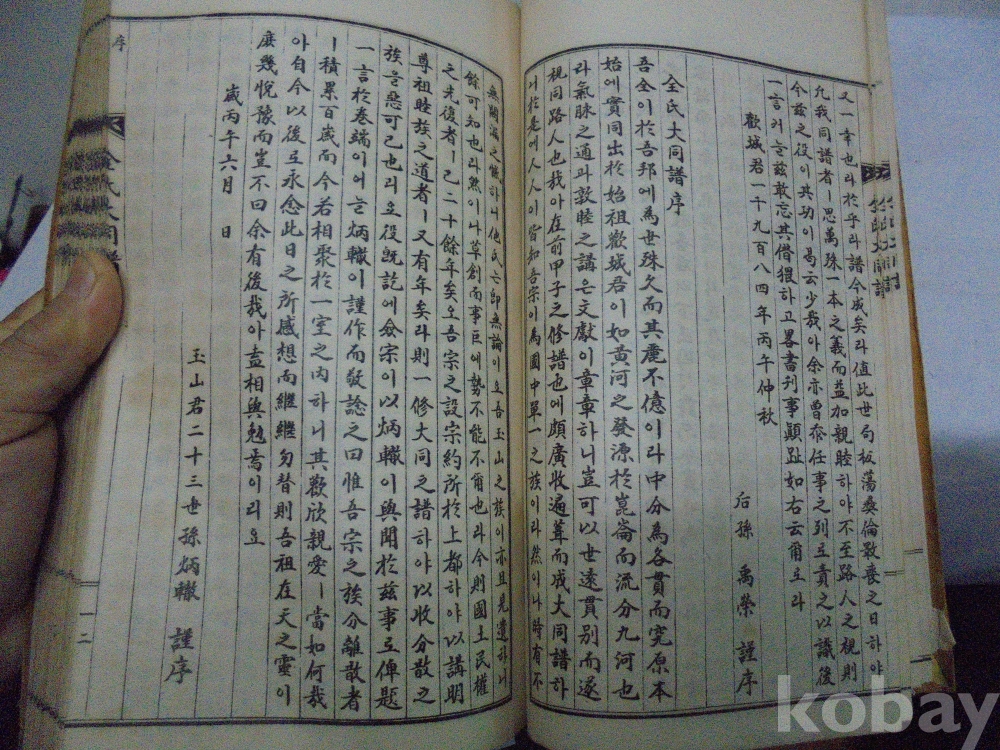 又一幸也라於乎라譜今成矣라值此世局板蕩彛倫斁喪之日하야
允我同譜者ㅣ思萬殊一本之義而益加親睦하야不至路人之視則
今玆之役이其功이曷云少哉아余亦曾忝任事之列로責之以識後
一言러늘玆敢忘其僭猥하고畧書刊事顚趾如右云爾로라
歡城君一千九百八四年丙午仲秋
后孫 禹榮 謹序
全氏大同譜序
吾全이於吾邦에爲世殊久而其麗不億이라中分爲各貫而究原本
始에實同出於始祖歡城君이如黃河之發源於崑崙而流分九河也
라氣脉之通과敦睦之講은文獻이章章하니豈可以世遠貫別而遂
視同路人也哉아在前甲子之修譜也에頗廣收遍葺而成大同譜하
니於是에人人이皆知吾宗이爲國中單一之族이라然이나時有不
無闕漏之歎하니他氏는卽無論이오吾玉山之族이亦且見遺하니
餘可知也라然이나草創而事巨에勢不能不爾也라今則國土民權
之光復者ㅣ已二十餘年矣오吾宗之設宗約所於上都하야以講明
尊祖睦族之道者ㅣ又有年矣라則一修大同之譜하야以收分散之
族을惡可已也리오役旣訖에僉宗이以炳轍이與聞於玆事로俾題
一言於卷端이어늘炳轍이謹作而敬諗之曰惟吾宗之族分離散者
ㅣ積累百歲而今若相聚於一室之內하니其歡欣親愛ㅣ當如何哉
아自今以後로永念此日之所感想而繼繼勿替則吾祖在天之靈이
庶幾悅豫而豈不曰余有後哉아盍相與勉焉이리오
歲丙午六月 日
玉山君二十三世孫炳轍 謹序
序
全氏大同譜
一二
kobay